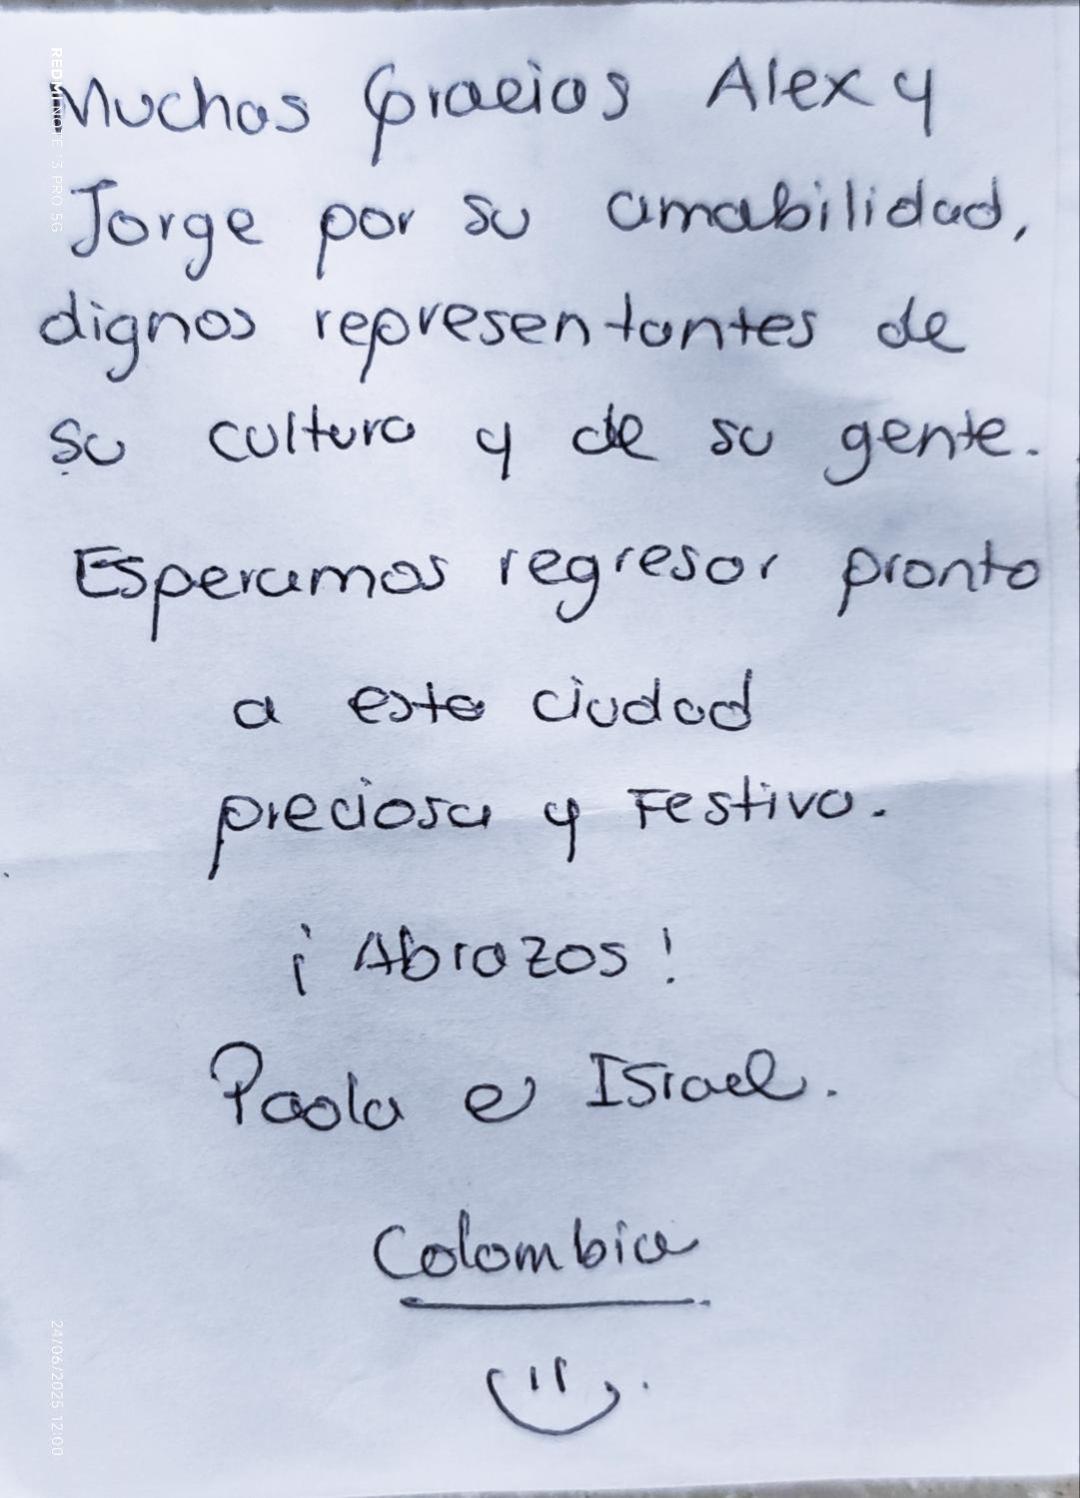 Muchas Gracias Alex y
Jorge por su amabilidad,
dignos representantes de
su cultura y de su gente.
Esperamos regresar pronto
a esta ciudad
preciosa y Festiva.
¡Abrazos!
Paola e Israel.
Colombia
REDMI NOTE 13 PRO 5G
24/06/2025 12:00